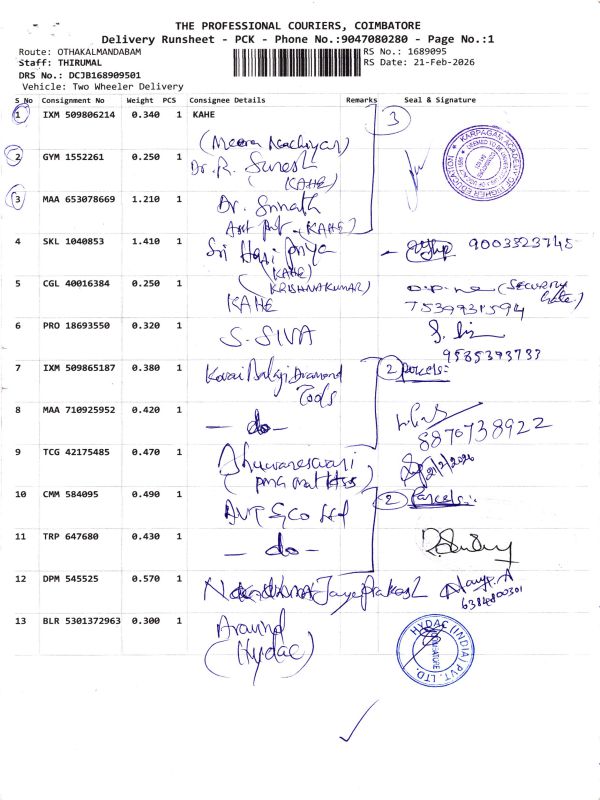 THE PROFESSIONAL COURIERS, COIMBATORE
Delivery Runsheet - PCK - Phone No.:9047080280 - Page No.:1
Route: OTHAKALMANDABAM
RS No.: 1689095
Staff: THIRUMAL
RS Date: 21-Feb-2026
DRS No.: DCJB168909501
Vehicle: Two Wheeler Delivery
S No Consignment No Weight PCS Consignee Details Remarks Seal & Signature
1 IXM 509806214 0.340 1 KAHE 3
(Meera
2 GYM 1552261 0.250 1 Dr. R. Suresh
(KAHE)
3 MAA 653078669 1.210 1 Dr. Srinath
Asst Prof - (KAHE)
KARPAGAM ACADEMY OF HIGHER EDUCATION
4 SKL 1040853 1.410 1 Sri Hari Priya 9003323745
(KAHE)
5 CGL 40016384 0.250 1 (KRISHNAKUMAR) (Security Gate)
KAHE 7539731594
6 PRO 18693550 0.320 1 S. SIVA
9585393733
7 IXM 509865187 0.380 1 Kovai Balaji Diamond 2 Parcels:
Tools
8 MAA 710925952 0.420 1 - do - 8870738922
9 TCG 42175485 0.470 1 Bhuvaneswari 21/2/2026
10 CMM 584095 0.490 1 AVT & Co Ltd 2 Parcels:
11 TRP 647680 0.430 1 - do -
12 DPM 545525 0.570 1 Jayaprakash
6384800301
13 BLR 5301372963 0.300 1 Aravind
(Hydac)
HYDAC (INDIA) PVT. LTD.